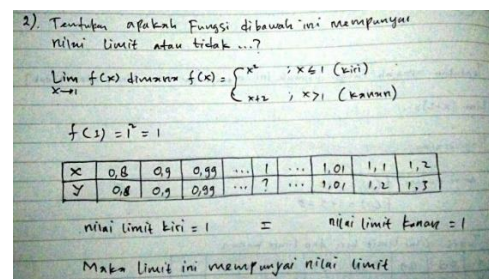 2). Tentukan apakah Fungsi dibawah ini mempunyai
nilai limit atau tidak ...?
Lim f(x) dimana f(x) = { x² ; x ≤ 1 (kiri)
x→1 x+2 ; x > 1 (kanan)
f(1) = 1² = 1
x 0,8 0,9 0,99 ... 1 ... 1,01 1,1 1,2
y 0,8 0,9 0,99 ... ? ... 1,01 1,2 1,3
nilai limit kiri = 1 = nilai limit kanan = 1
Maka limit ini mempunyai nilai limit